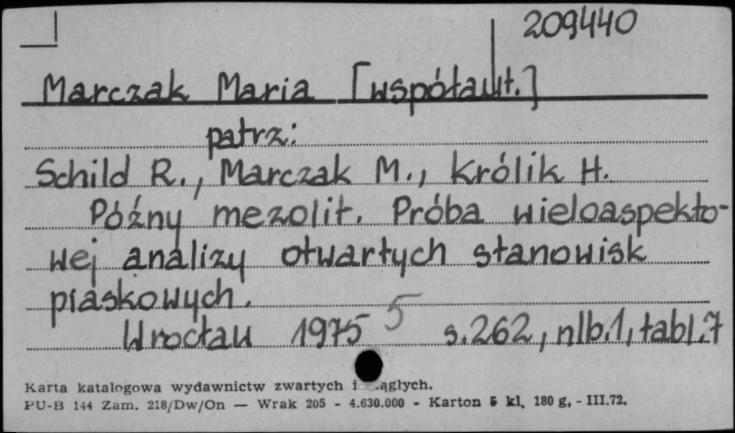 209440
Marczak Maria [współaut.]
patrz:
Schild R., Marczak M., Królik H.
Późny mezolit. Próba wieloaspekto-
wej analizy otwartych stanowisk
piaskowych.
Wrocław 1975 5 s.262, nlb.1, tabl.7
Karta katalogowa wydawnictw zwartych i ągłych.
PU-B 144 Zam. 218/Dw/On — Wrak 205 - 4.630.000 - Karton 5 kl. 180 g. - III.72.